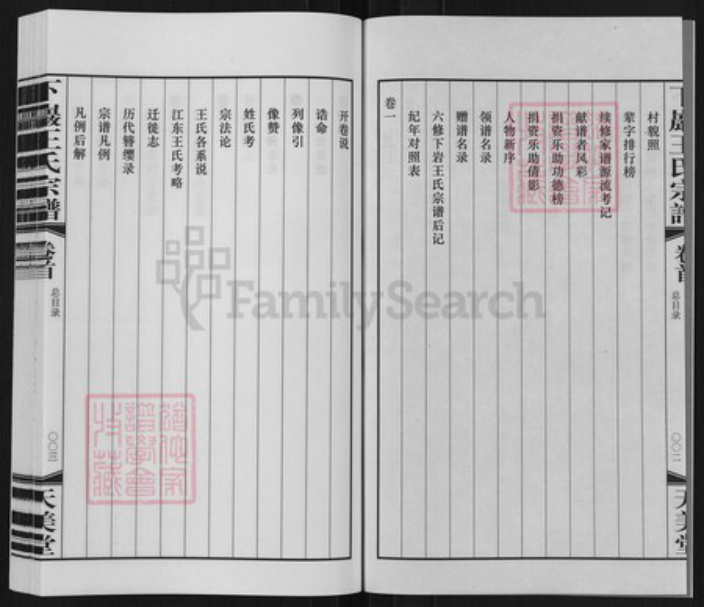 下巖王氏宗谱
卷首
总目录
〇〇二
天美堂
村貌照
辈字排行榜
续修家谱源流考记
献谱者风彩
捐资乐助功德榜
捐资乐助倩影
人物新序
领谱名录
赠谱名录
六修下岩王氏宗谱后记
纪年对照表
卷一
开卷说
诰命
列像引
像赞
姓氏考
宗法论
王氏各系说
江东王氏考略
迁徙志
历代簪缨录
宗谱凡例
凡例后解
下巖王氏宗谱
卷首
总目录
〇〇三
天美堂
FamilySearch